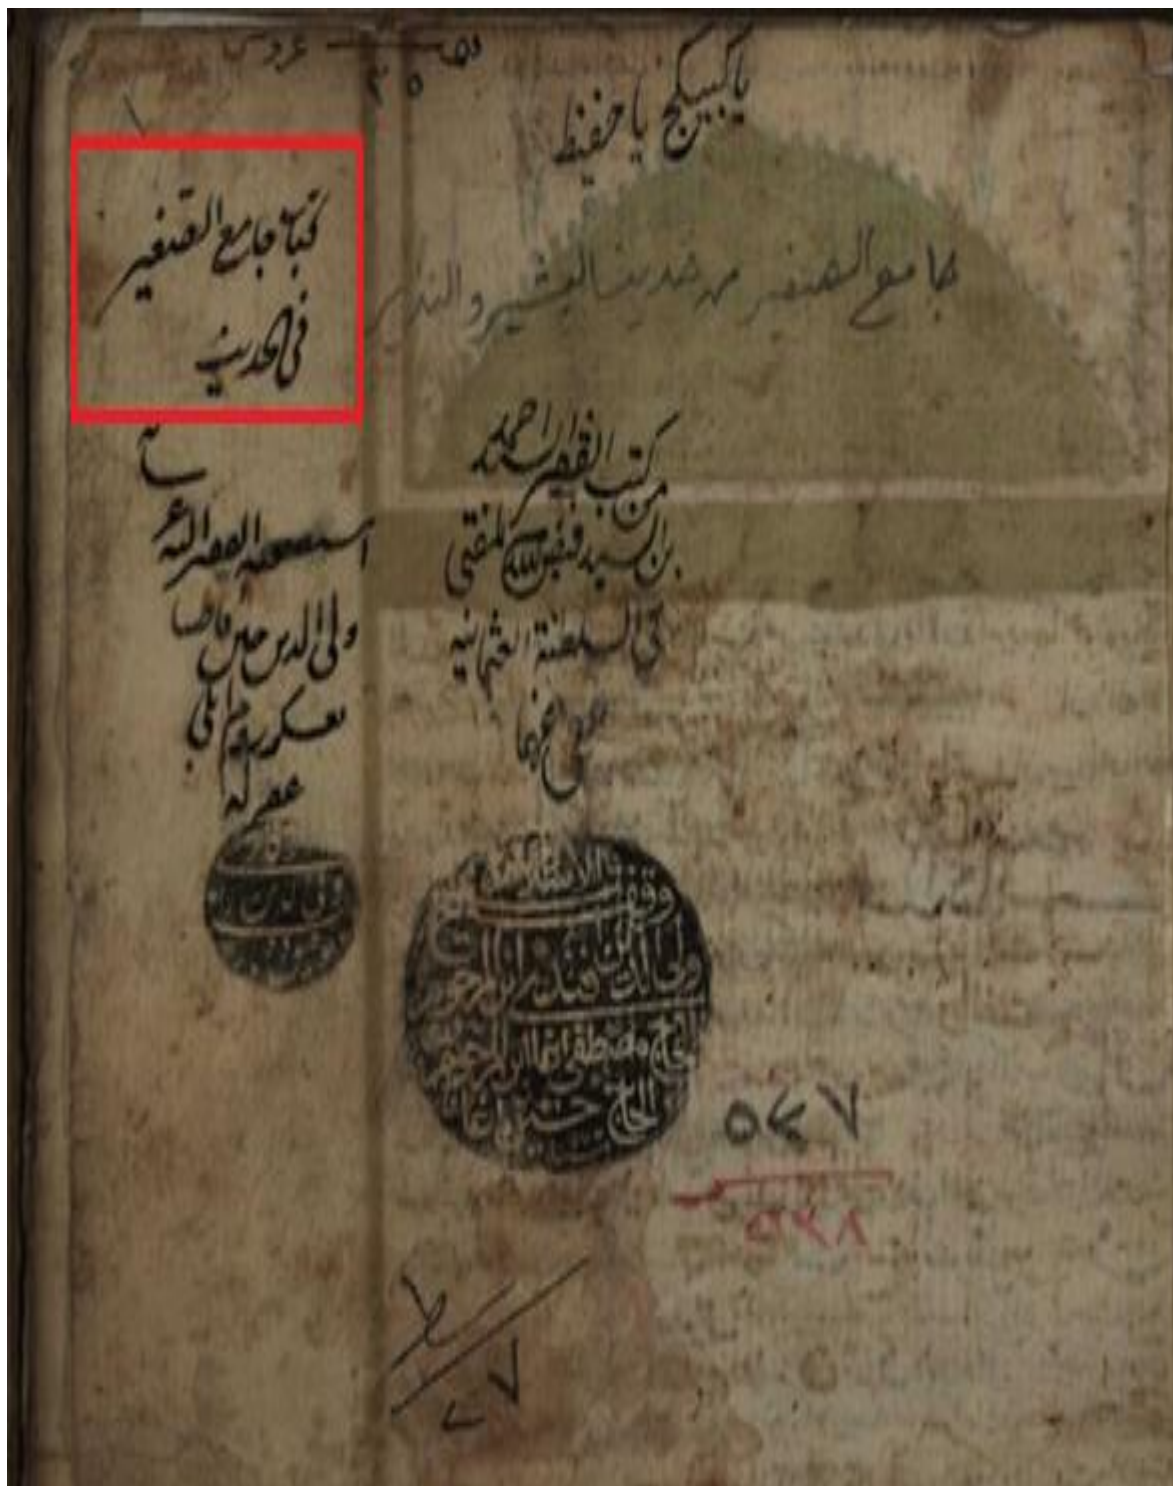 يا كبيكج يا حفيظ
كتاب جامع الصغير
في الحديث
جامع الصغير من حديث البشير والنذير
من كتب الفقير السيد احمد
بن السيد فيض الله المفتي
في السلطنة العثمانية
عفي عنهما
الفقير اليه
ولي الدين حين قاضيا
بعسكر روم ايلي
غفر له
وقف
ولي الدين افندي ابن المرحوم
الحاج مصطفى اغا ابن المرحوم
الحاج حسين اغا
٥٤٧
٥٤٨